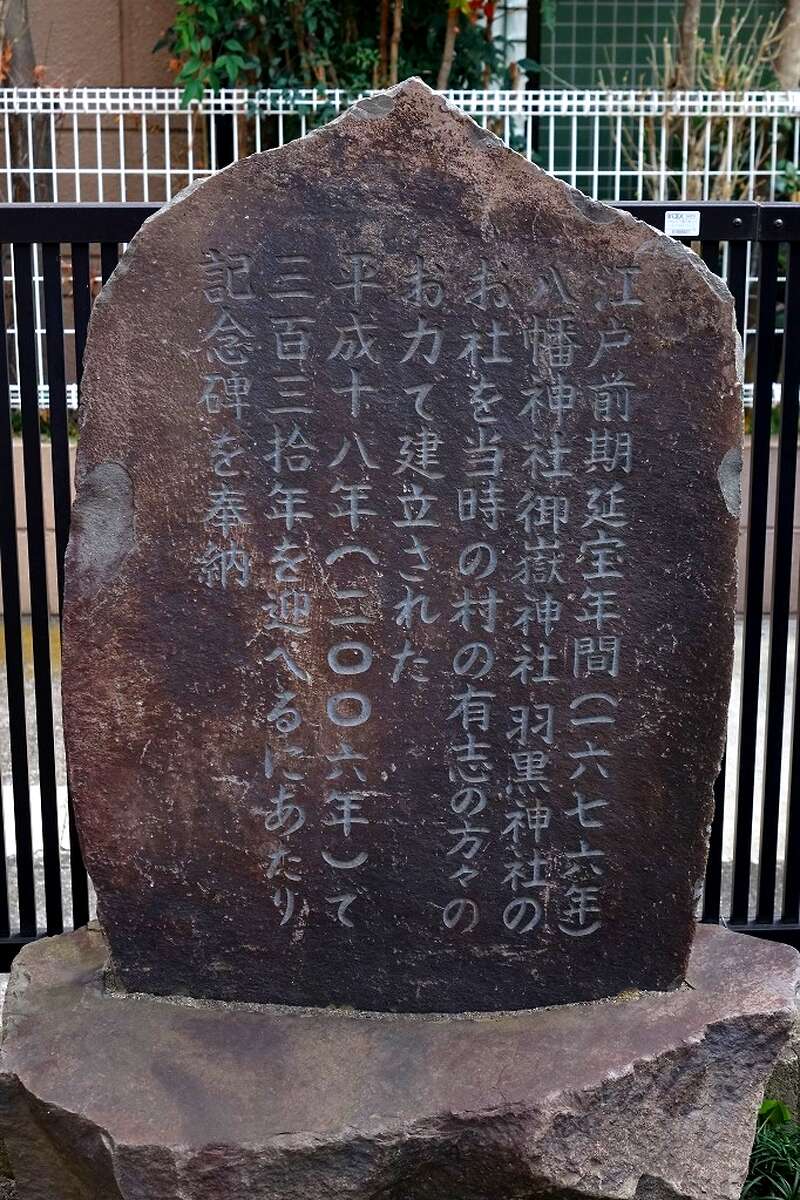 江戸前期延宝年間（一六七六年）
八幡神社御嶽神社羽黒神社の
お社を当時の村の有志の方々の
お力て建立された
平成十八年（二〇〇六年）で
三百三拾年を迎へるにあたり
記念碑を奉納